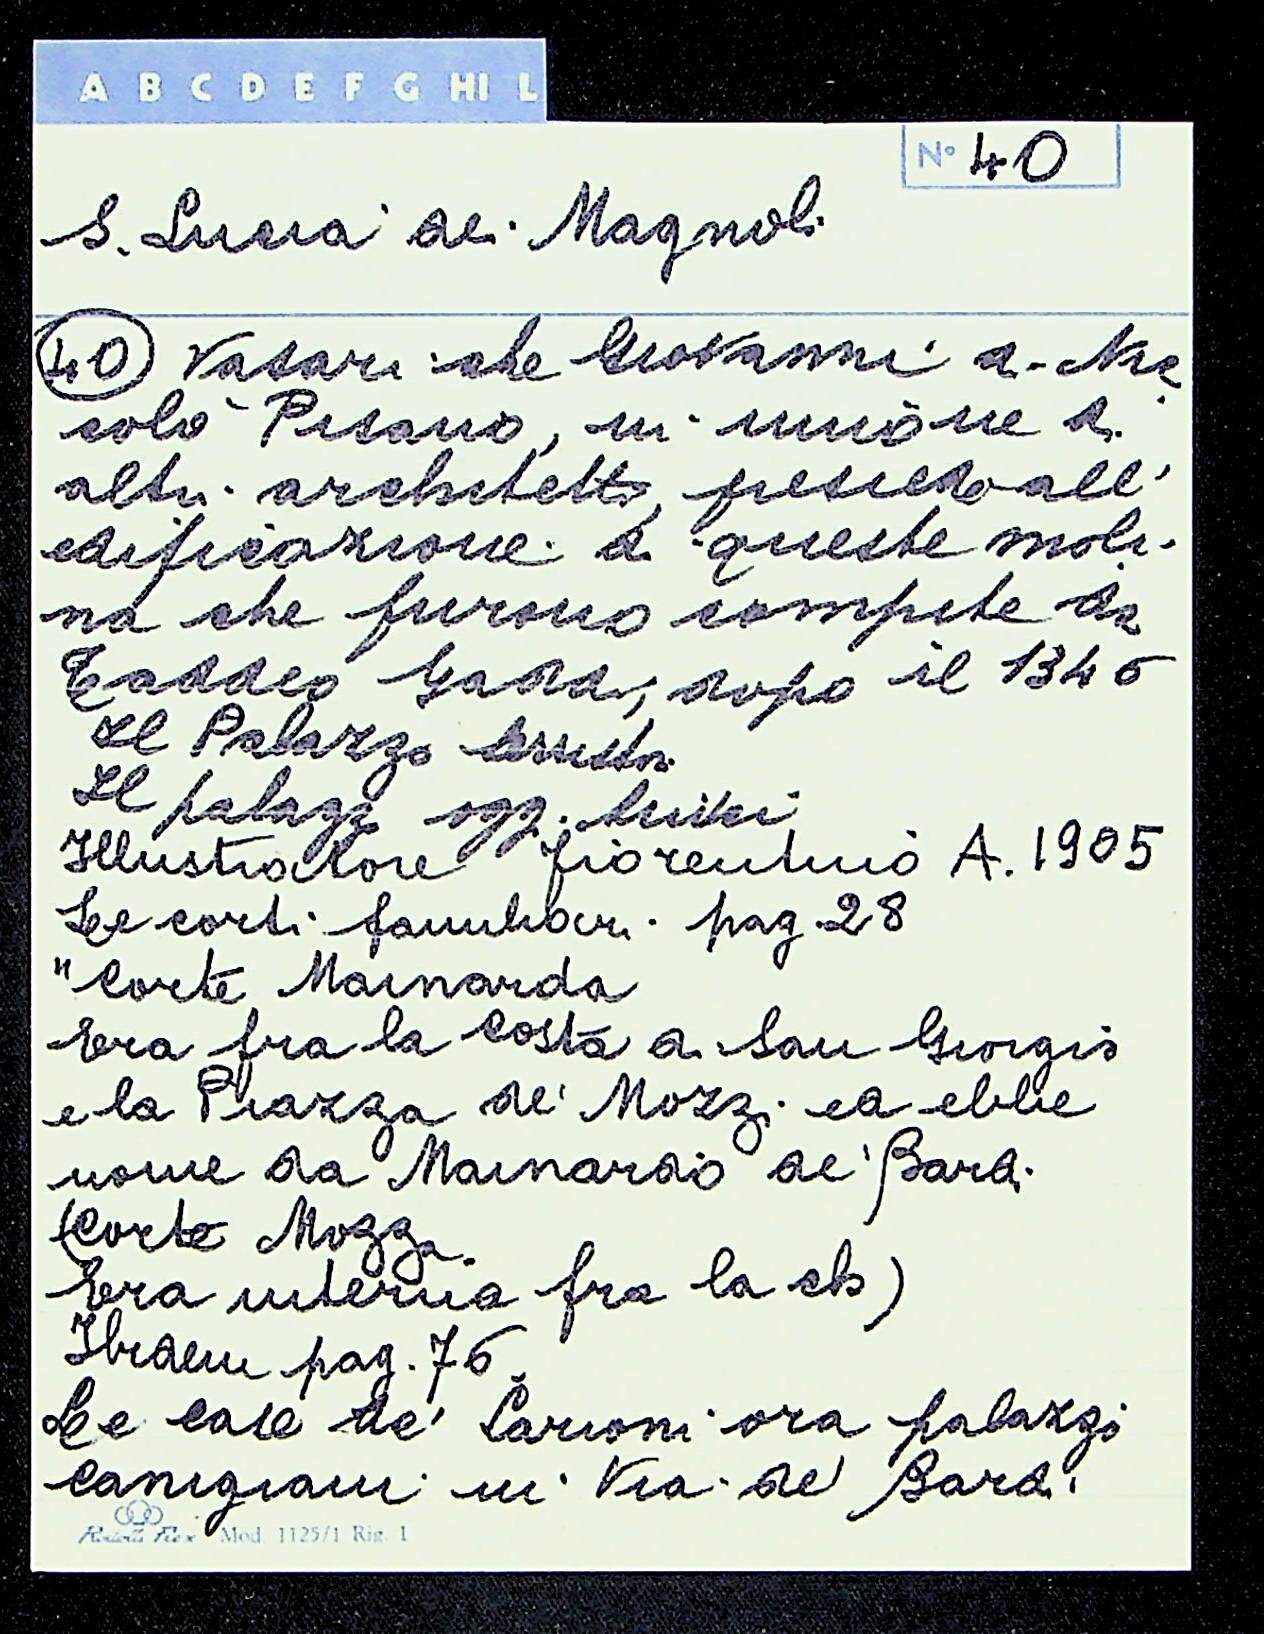 A B C D E F G HI L
N° 40
S. Lucia dei Magnoli
40 Vasari che Giovanni d. Nic
colò Pisano, in unione di
altri architetti, all'
edificazione di queste moli-
na che furono compite da
Taddeo Gaddi, dopo il 1346
Il Palazzo
Il palazz oggi
Illustratore fiorentino A. 1905
Le corti familiari pag 28
"Corte Mainarda
Era fra la Costa a San Giorgio
e la Piazza de' Mozzi ed ebbe
nome da Mainardo de' Bardi
(Corte Mozza
Era interna fra la ch)
Ibidem pag. 76
Le case de' Larioni ora palazzi
Canigiani in Via de' Bardi
Mod. 1125/1 Rig. 1